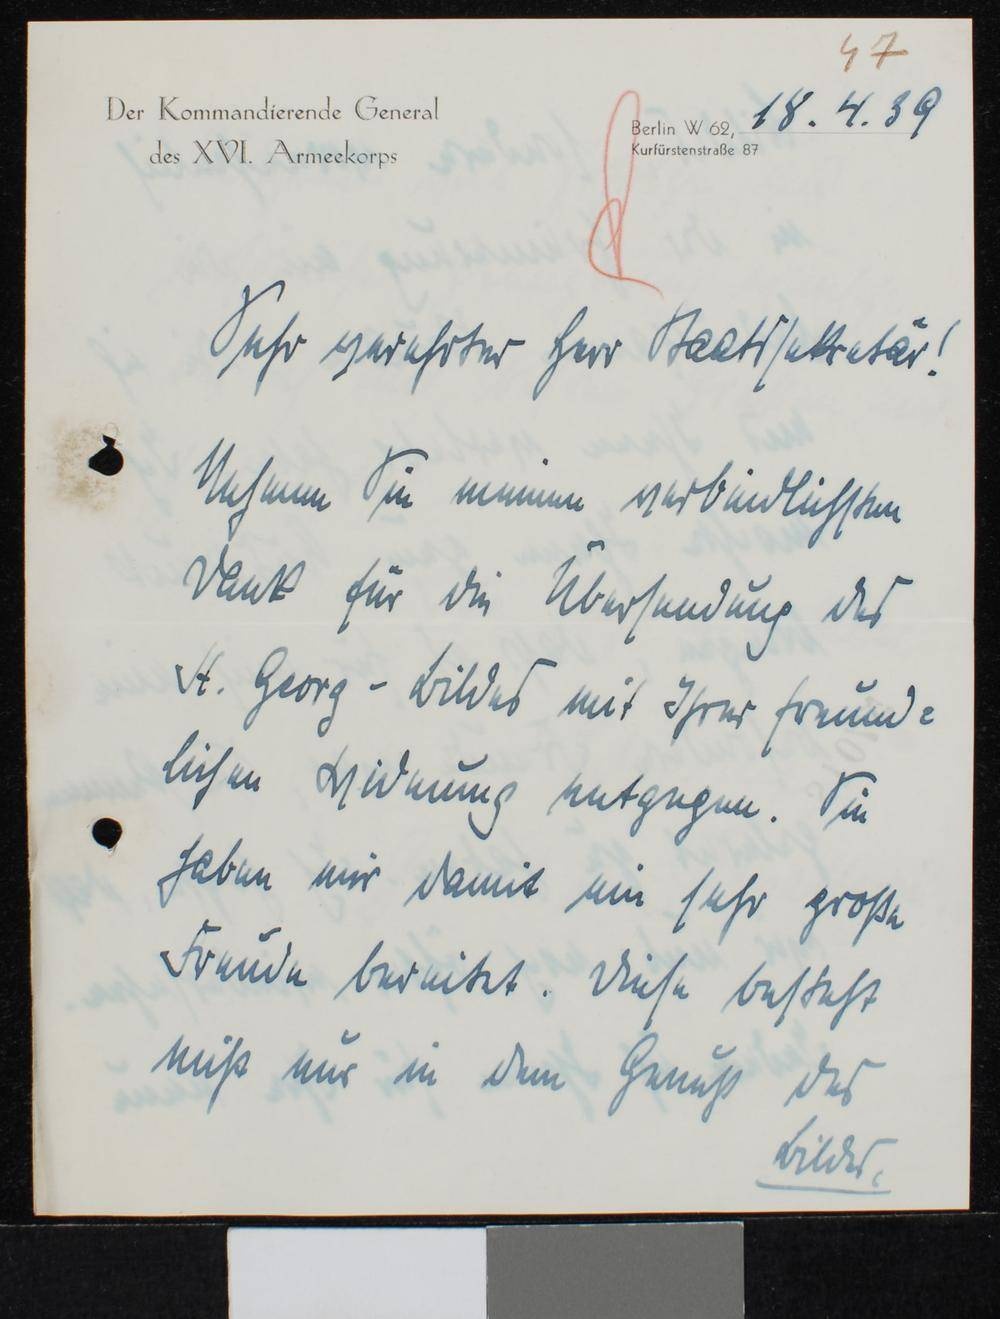 47
Der Kommandierende General
des XVI. Armeekorps
Berlin W 62, 18.4.39
Kurfürstenstraße 87
Sehr verehrter Herr Staatssekretär!
Nehmen Sie meinen verbindlichsten
Dank für die Übersendung des
St. Georg-Bildes mit Ihrer freund=
lichen Widmung entgegen. Sie
haben mir damit eine sehr große
Freude bereitet. Diese besteht
nicht nur in dem Genuß des
Bildes,